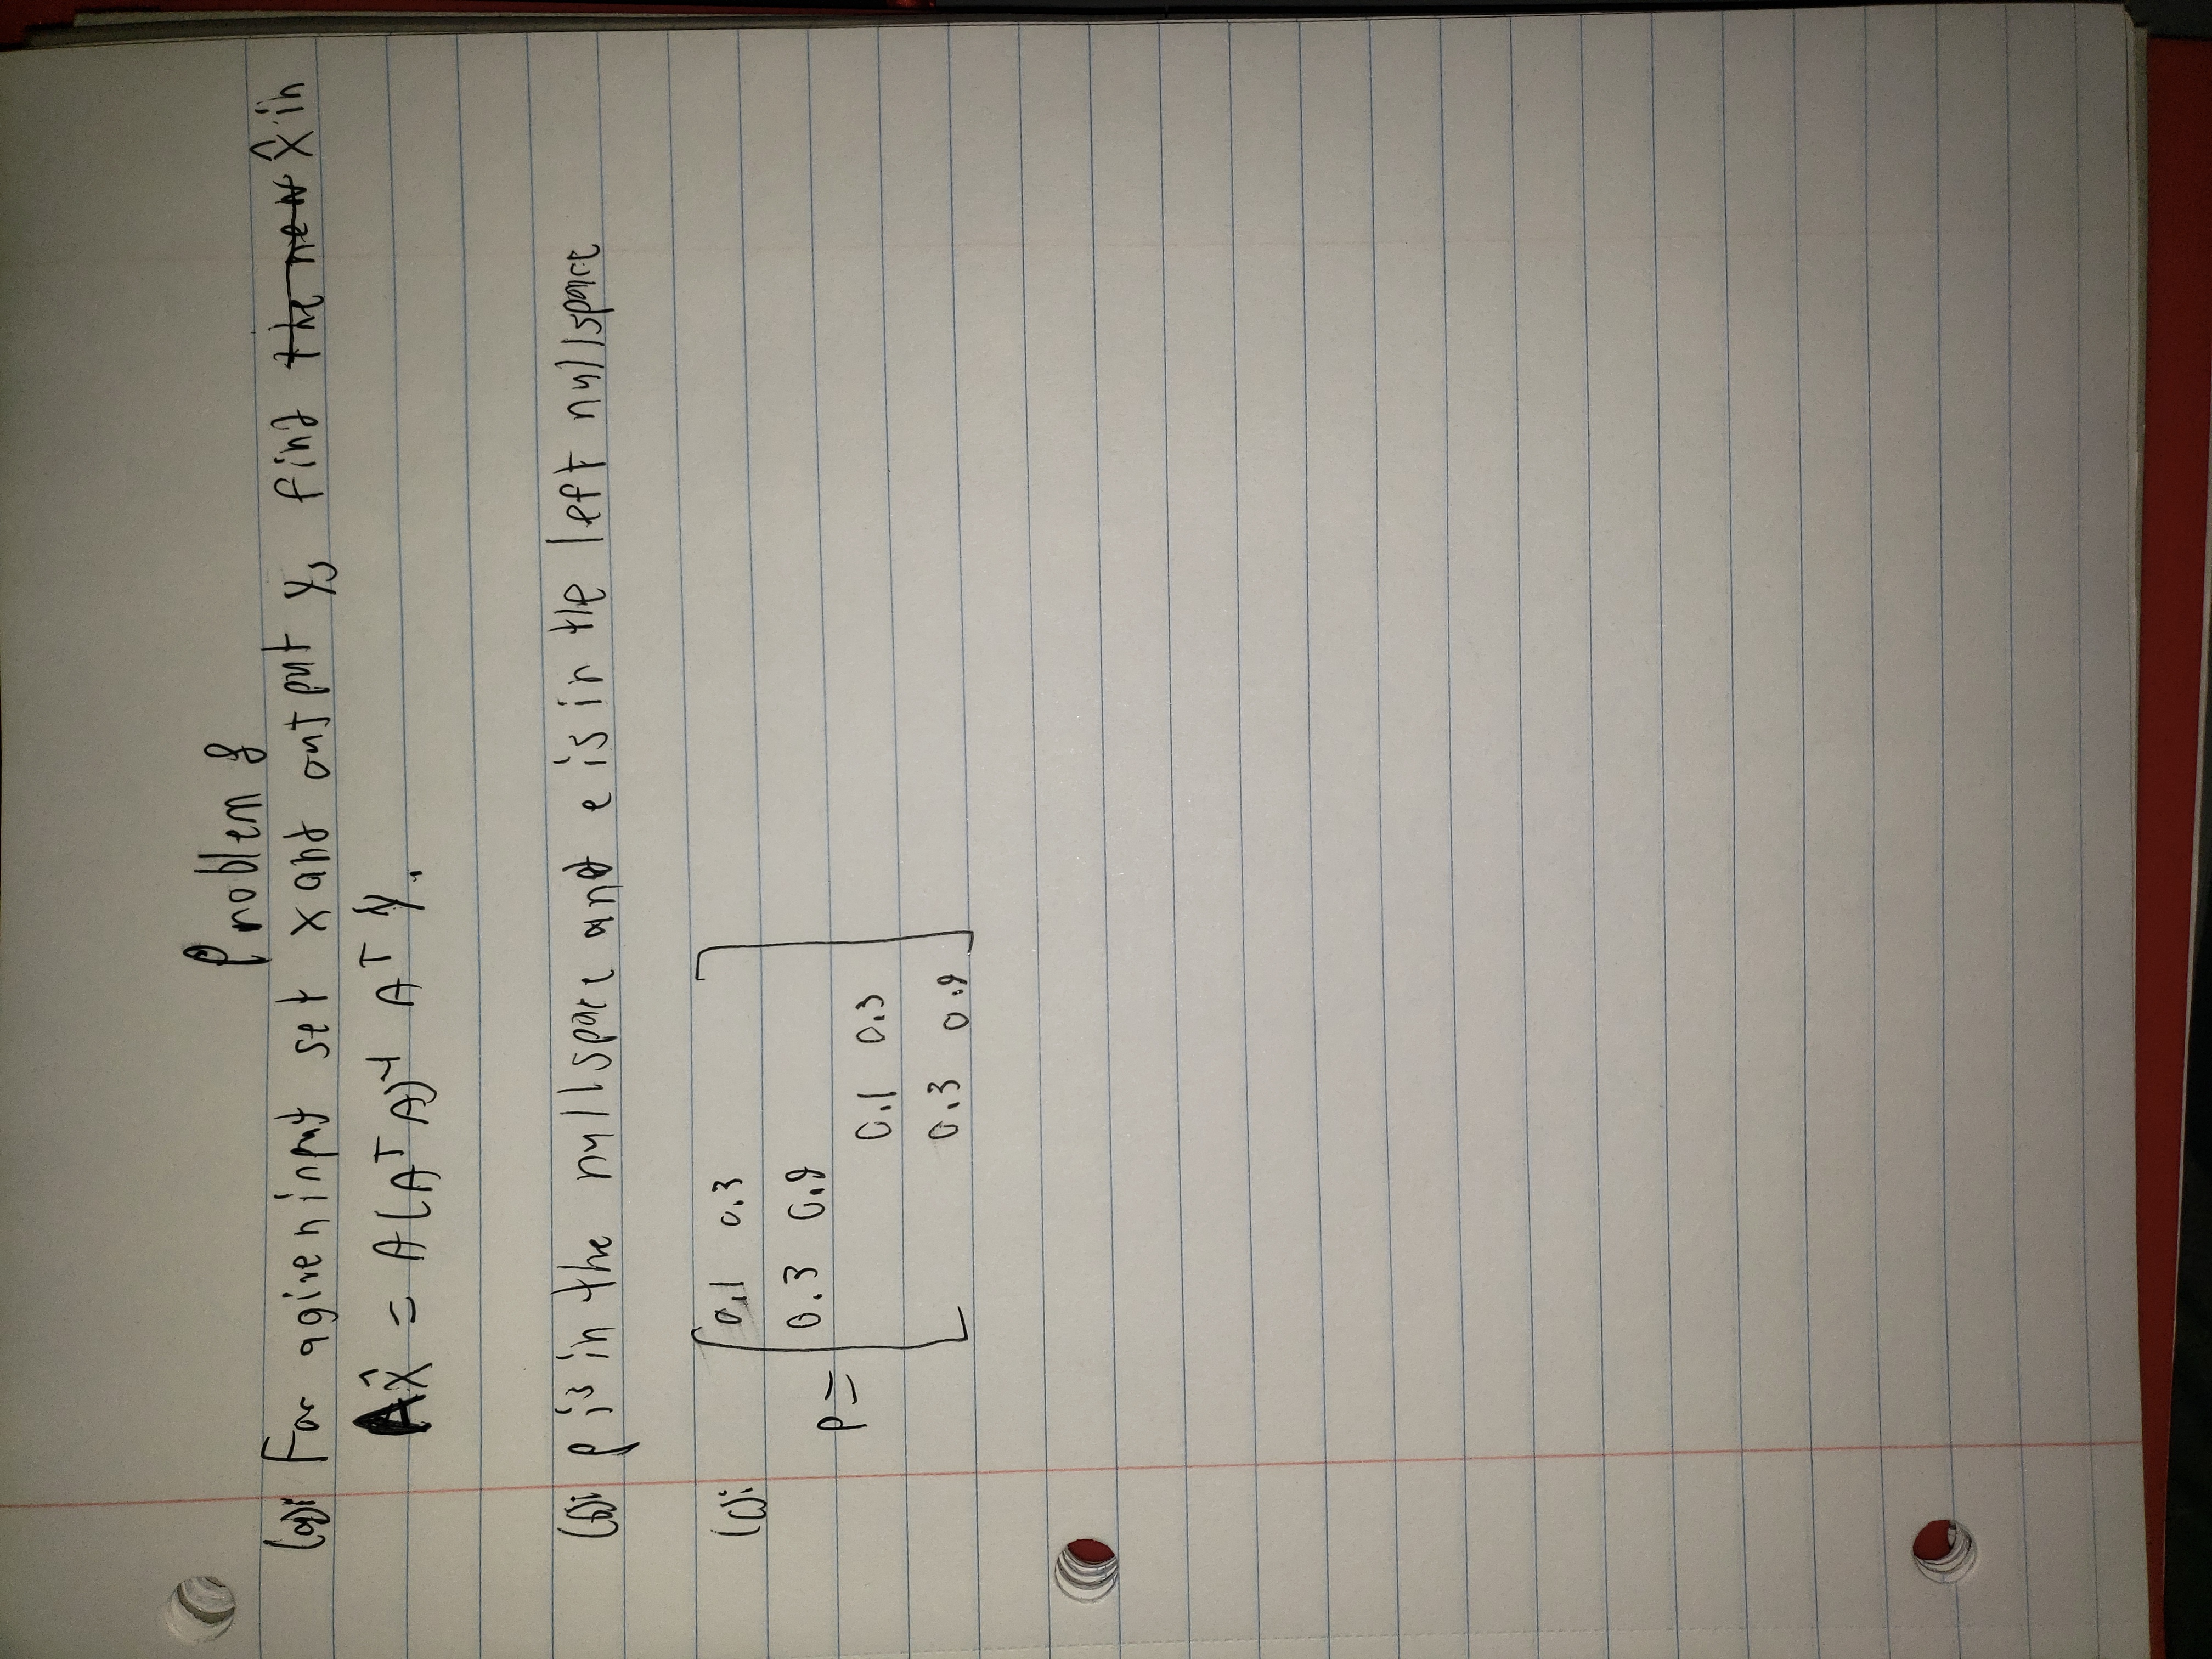 Problem 8
(a): For a given input set x and output y, find the new x̂ in
Ax̂ = A(AᵀA)⁻¹ Aᵀ y.
(b): p is in the nullspace and e is in the left nullspace
(c):
0.1 0.3
0.3 0.9
P=
0.1 0.3
0.3 0.9